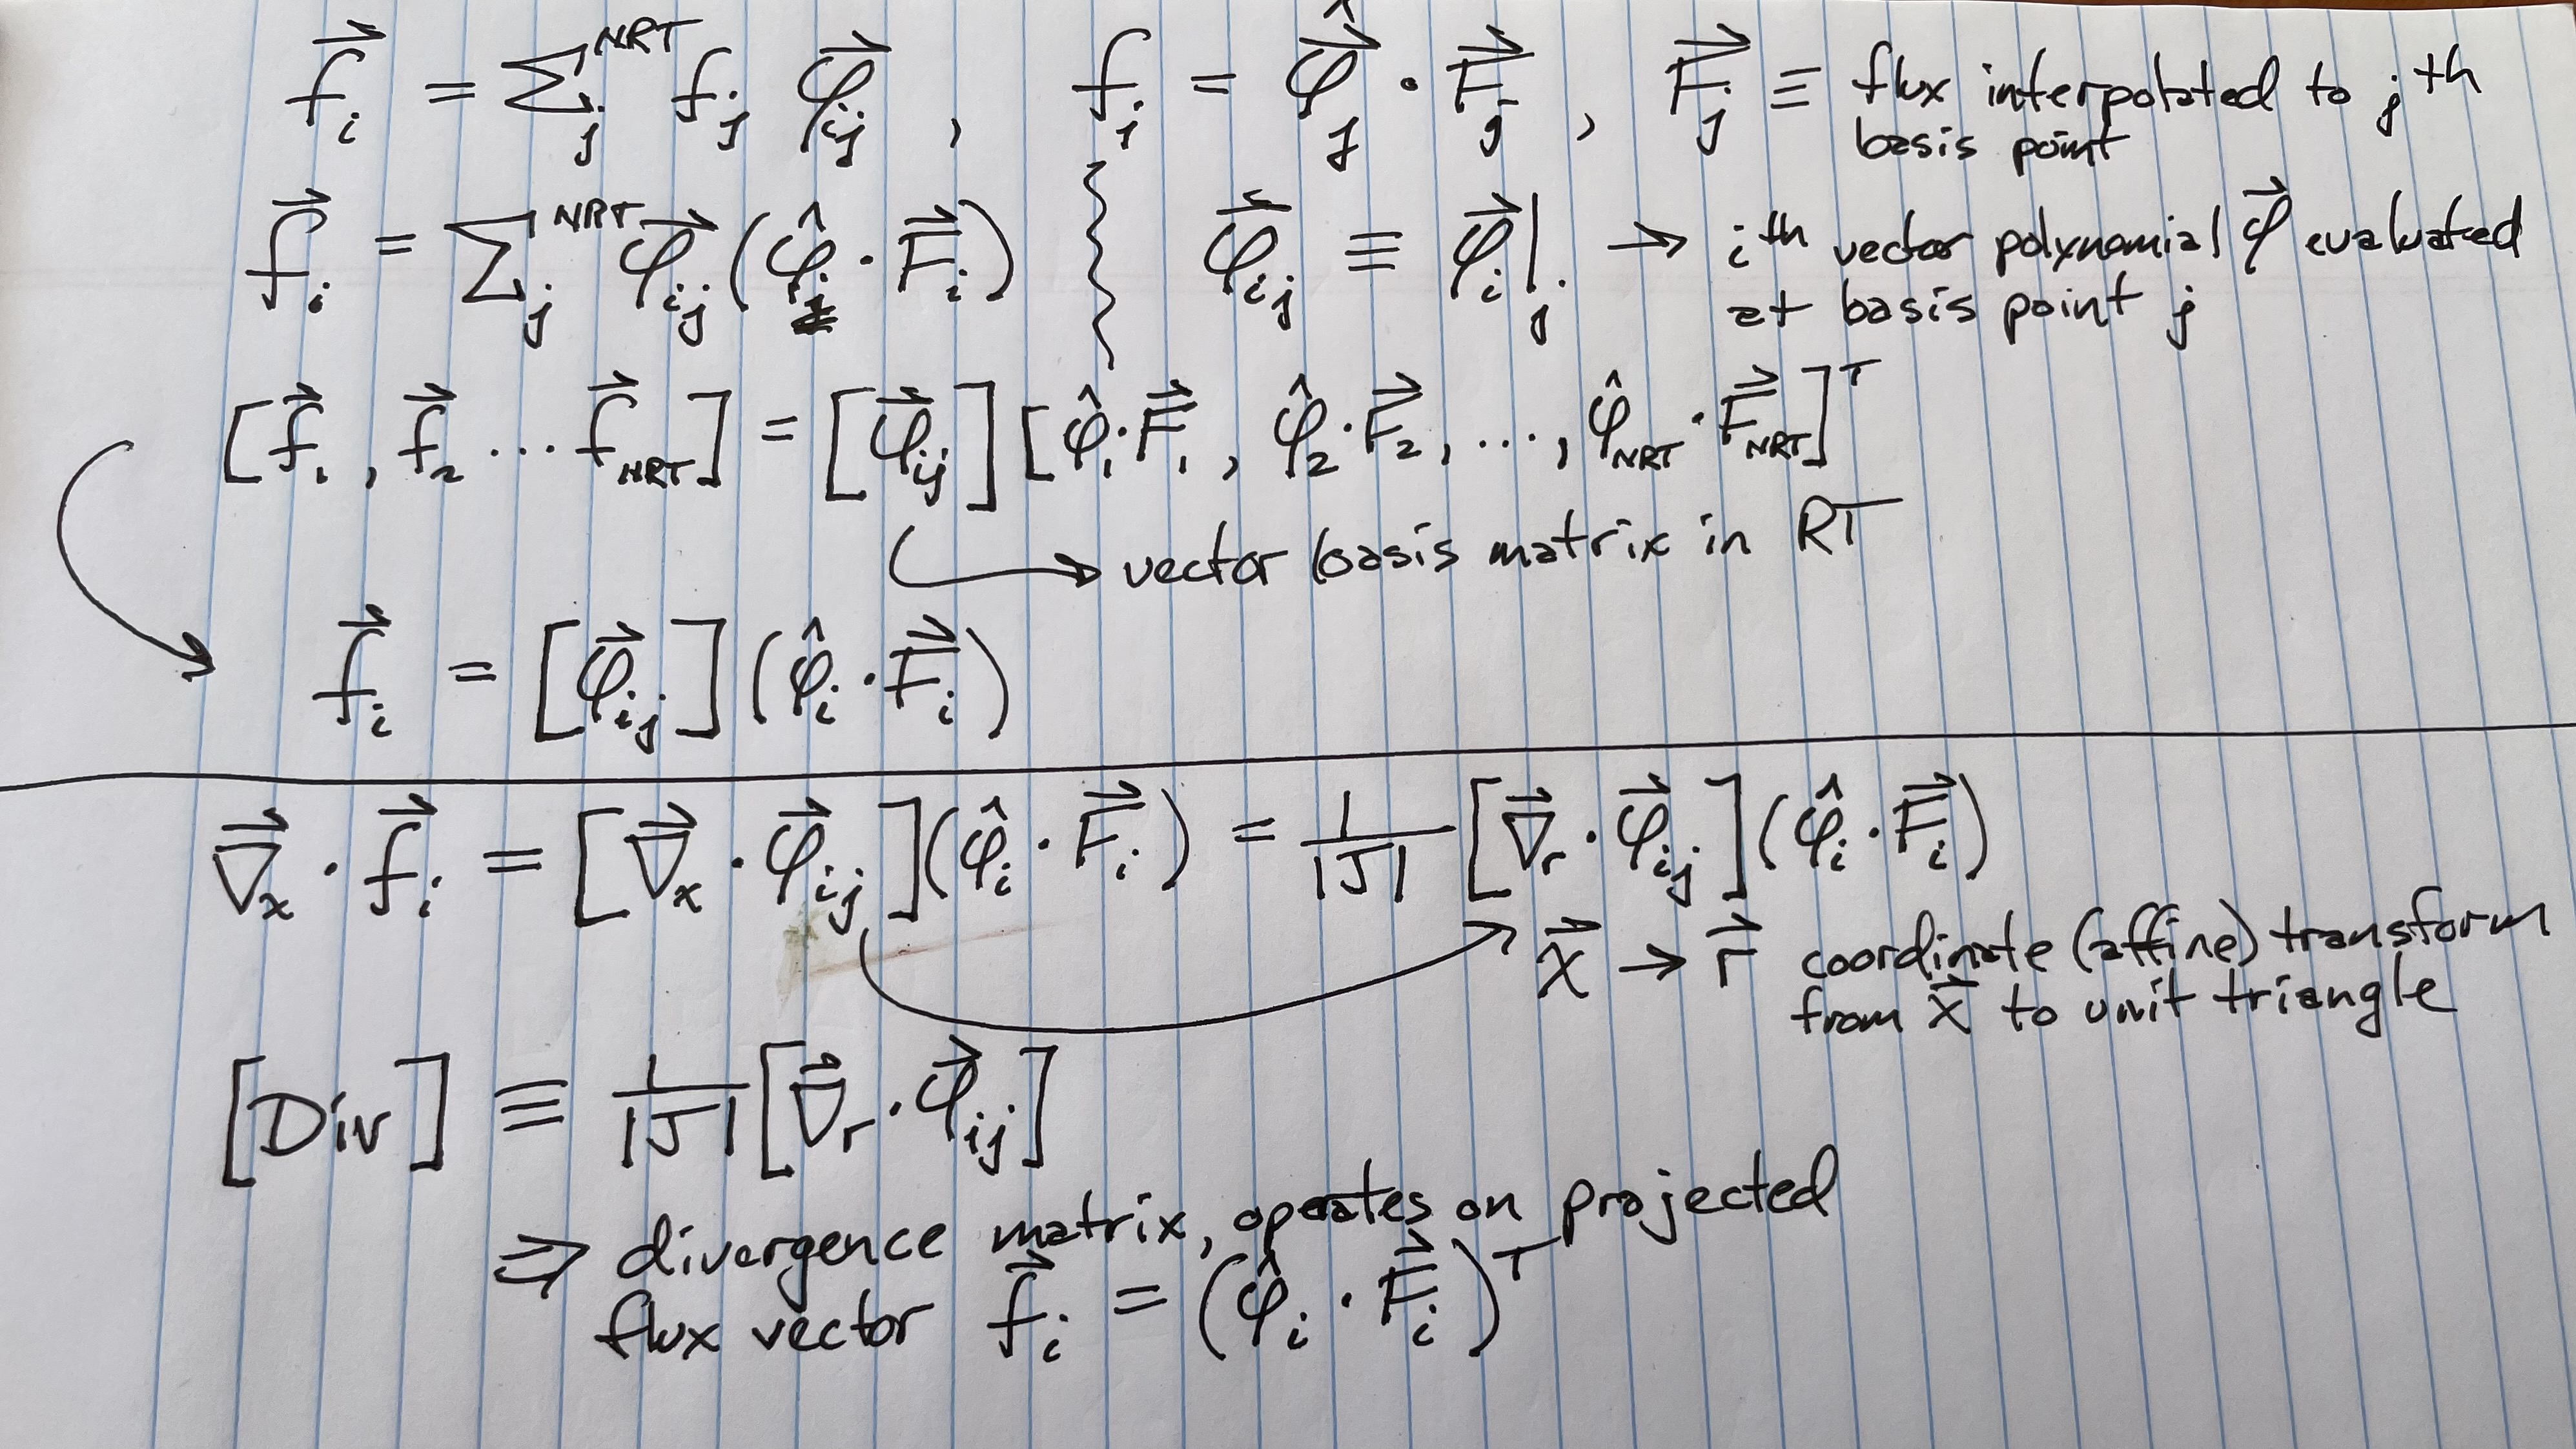 f⃗ᵢ = Σⱼ^NRT fⱼ φ⃗ᵢⱼ , fⱼ = φ̂ⱼ · F⃗ⱼ , F⃗ⱼ ≡ flux interpolated to jᵗʰ
basis point
f⃗ᵢ = Σⱼ^NRT φ⃗ᵢⱼ (φ̂ⱼ · F⃗ᵢ) φ⃗ᵢⱼ ≡ φ⃗ᵢ|ⱼ → iᵗʰ vector polynomial φ⃗ evaluated
at basis point j
[f⃗₁ , f⃗₂ ... f⃗_NRT] = [φ⃗ᵢⱼ] [φ̂₁·F⃗₁ , φ̂₂·F⃗₂ , ... , φ̂_NRT · F⃗_NRT]ᵀ
→ vector basis matrix in RT
f⃗ᵢ = [φ⃗ᵢⱼ] (φ̂ᵢ · F⃗ᵢ)
∇⃗ₓ · f⃗ᵢ = [∇⃗ₓ · φ⃗ᵢⱼ] (φ̂ᵢ · F⃗ᵢ) = 1/|J| [∇⃗ᵣ · φ⃗ᵢⱼ] (φ̂ᵢ · F⃗ᵢ)
x⃗ → r⃗ coordinate (affine) transform
from x⃗ to unit triangle
[Div] ≡ 1/|J| [∇⃗ᵣ · φ⃗ᵢⱼ]
⇒ divergence matrix, operates on projected
flux vector f⃗ᵢ = (φ̂ᵢ · F⃗ᵢ)ᵀ